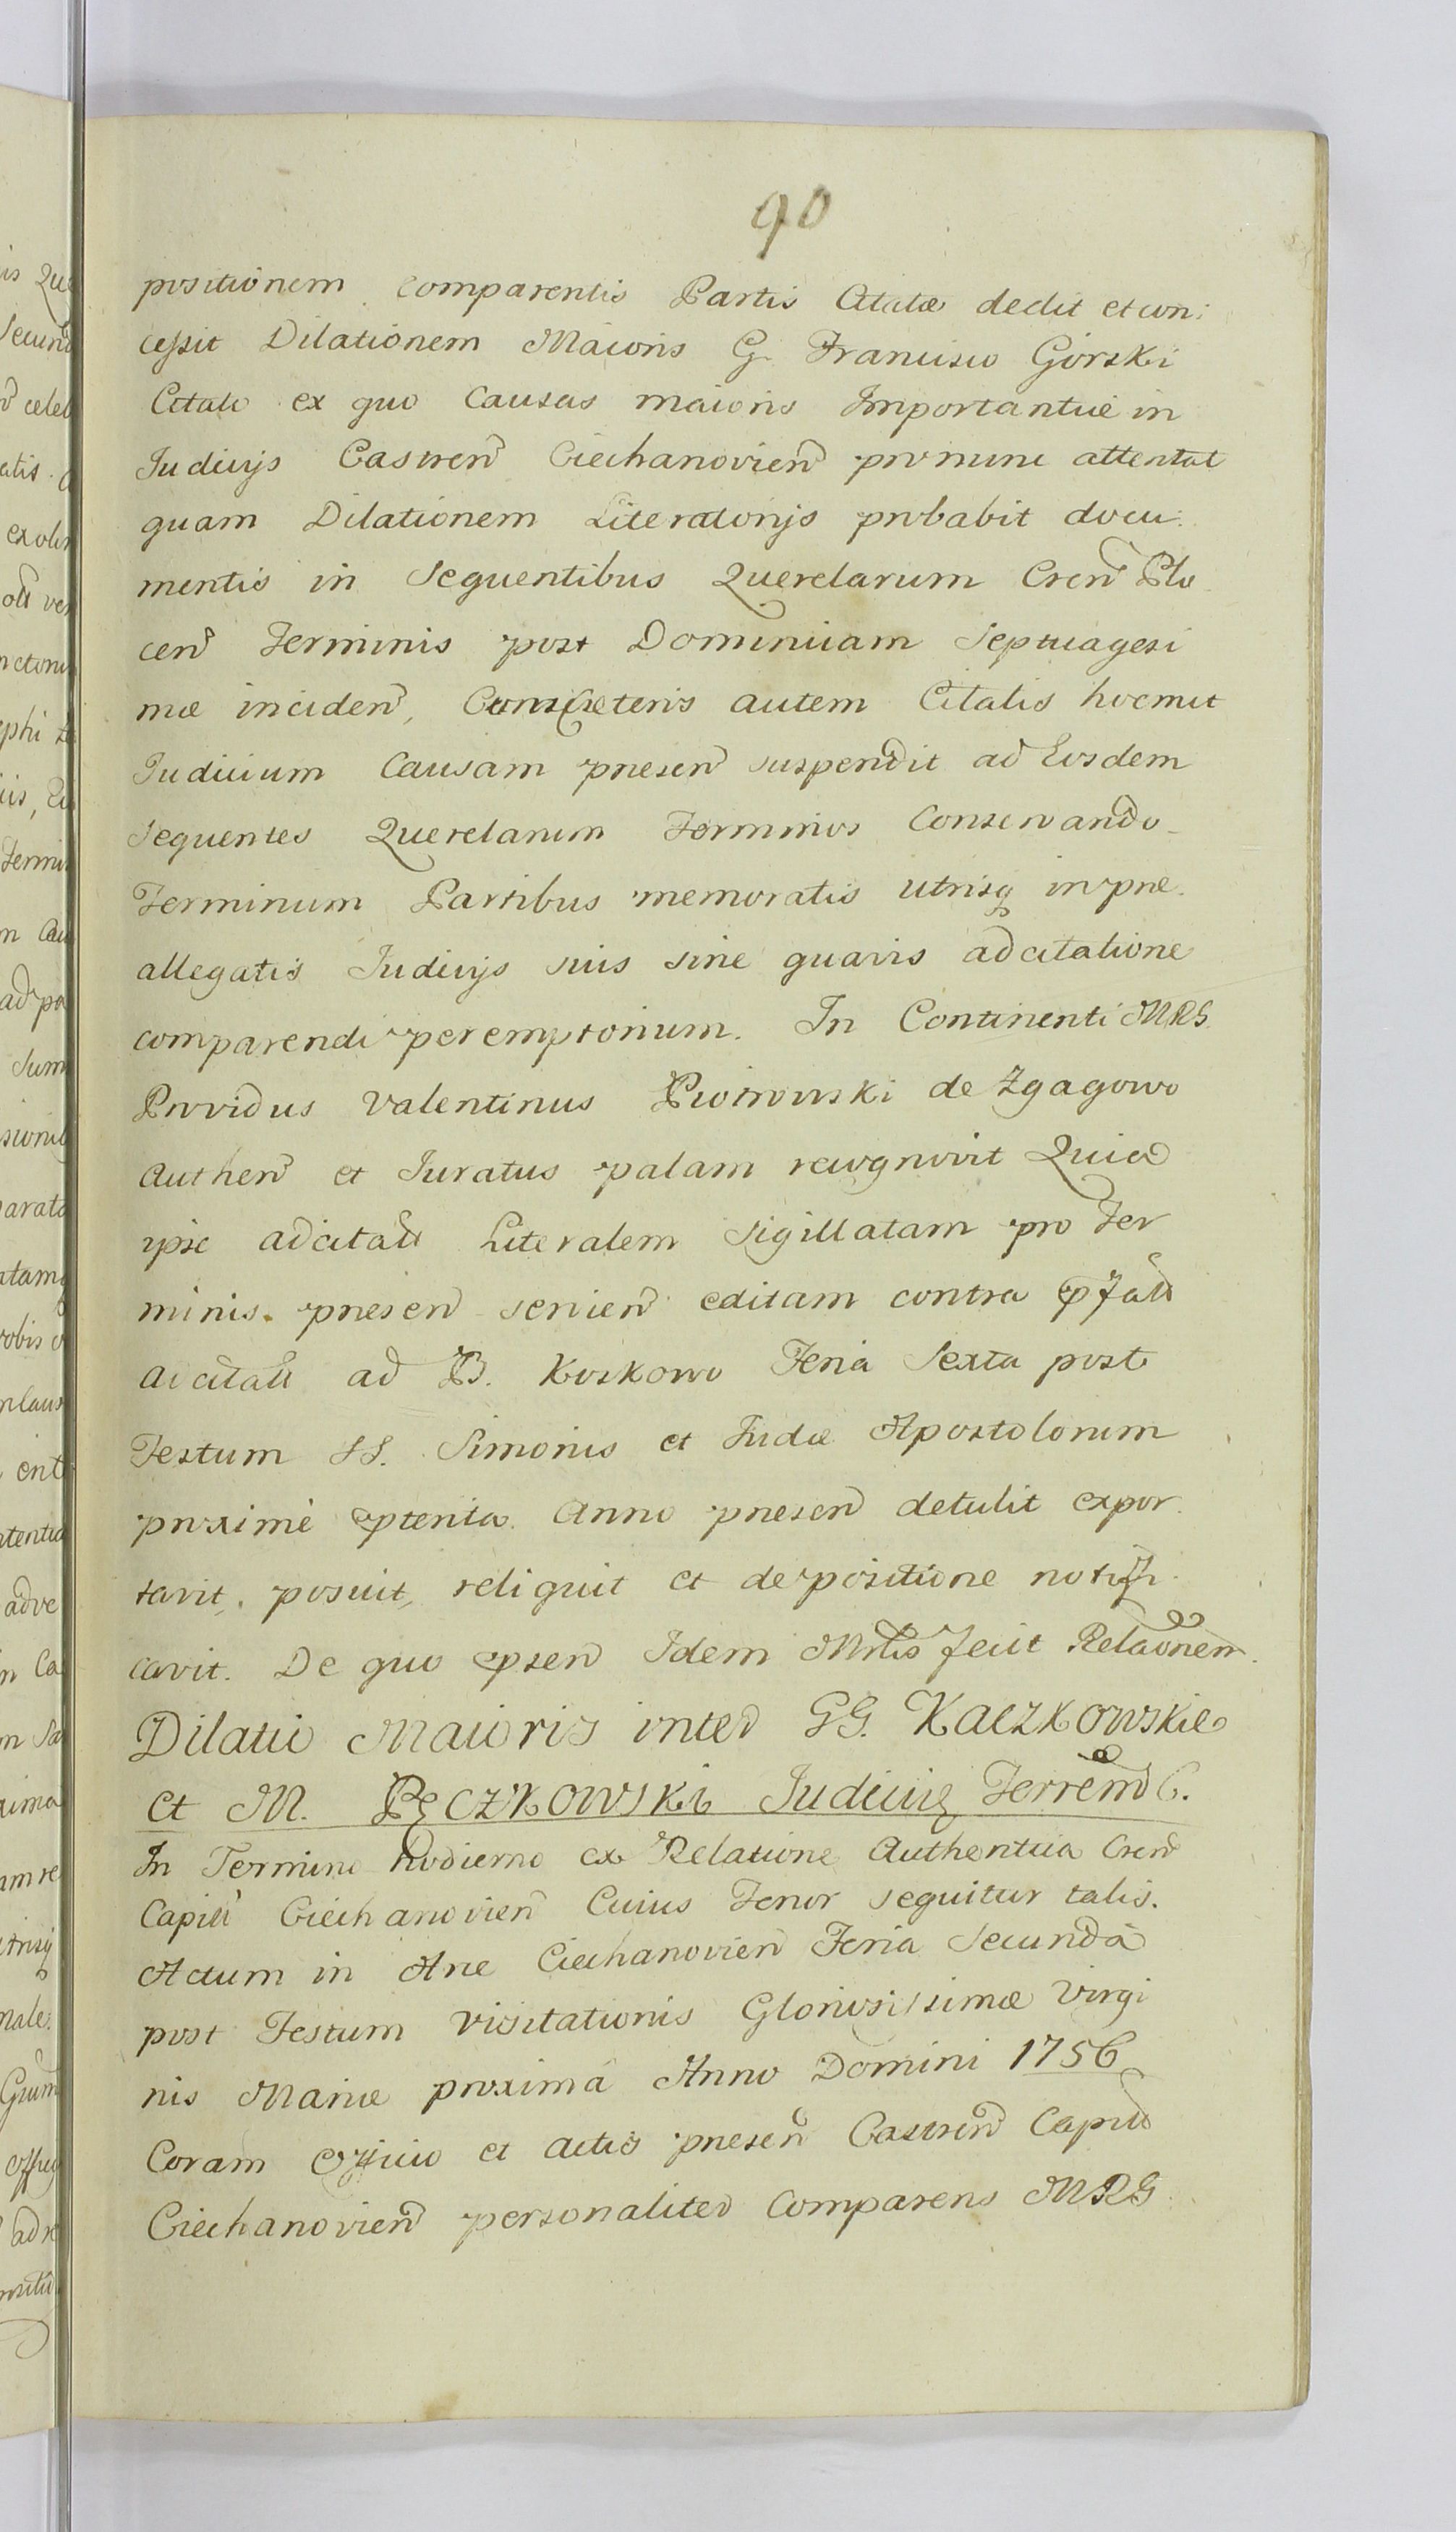 90
positionem comparentis Partis Citatæ dedit et con:
cessit Dilationem Maioris G. Francisco Górski
Citato ex quo Causas maioris Importantiæ in
Iudicijs Castren Ciechanovien pro nunc attentat
quam Dilationem Literatorijs probabit docu:
mentis in sequentibus Querelarum Cren Plo
cen Terminis post Dominicam Septuagesi
mæ inciden, Cum Cæteris autem Citatis hocmet
Iudicium Causam præsen suspendit ad Eosdem
sequentes Querelarum Terminos Conservando
Terminum Partibus memoratis utrisq in præ
allegatis Iudicijs suis sine quavis adcitatione
comparendi peremptorium. In Continenti MRS
Providus Valentinus Piotrowski de Zgagowo
Authen et Iuratus palam recognovit Quia
ipse adcitaõ Literalem sigillatam pro Ter
minis præsen servien editam contra
ad B. Koskowo Feria Sexta post
Festum SS. Simonis et Iudæ Apostolorum
proximè Anno præsen detulit expor
tavit, posuit, reliquit et de positione notifi
cavit. De quo Idem Mnlis fecit Relaõnem.
Dilatio Maioris inter GG. Kaczkowskie
et M. Pęczkowski Iudicem Terren C.
In Termino hodierno ex Relatione Authentica Cren
Capitt Ciechanovien Cuius Tenor sequitur talis.
Actum in Arce Ciechanovien Feria Secunda
post Festum Visitationis Gloriosissimæ Virgi
nis Mariæ proximâ Anno Domini 1756
Coram Officio et actis præsen Castren Capitt
Ciechanovien personaliter Comparens MRS
is Que
Secund
celeb
atis
ad po
Sum
arata
adve